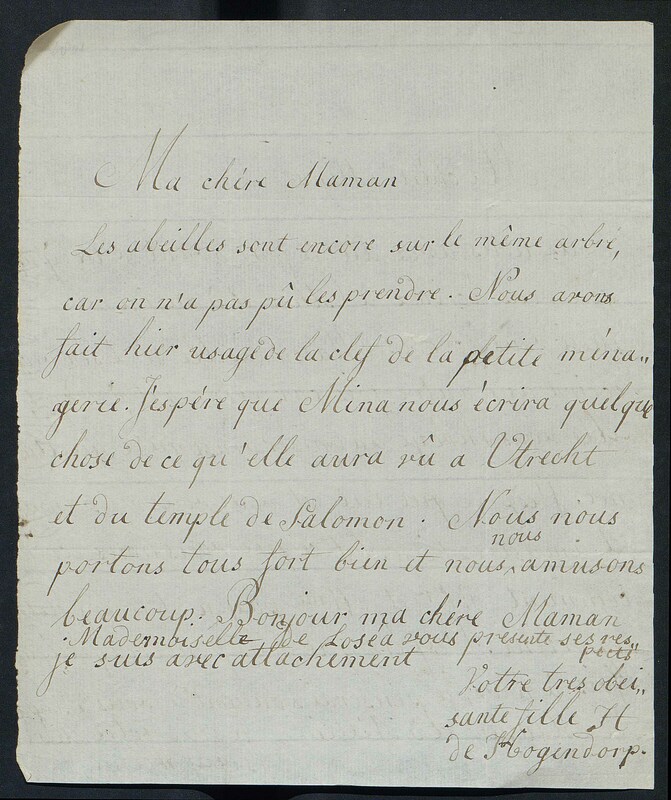 Ma chére Maman
Les abeilles sont encore sur le même arbre,
car on n'a pas pû les prendre. Nous avons
fait hier usage de la clef de la petite ména„
gerie. J'espére que Mina nous écrira quelque
chose de ce qu'elle aura vû a Utrecht
et du temple de Salomon. Nous nous
nous
portons tous fort bien et nous amusons
beaucoup. Bonjour ma chére Maman
Mademoiselle de Loséa vous presente ses res„
pects
je suis avec attachement
Votre tres obei„
sante fille H
de Hogendorp.